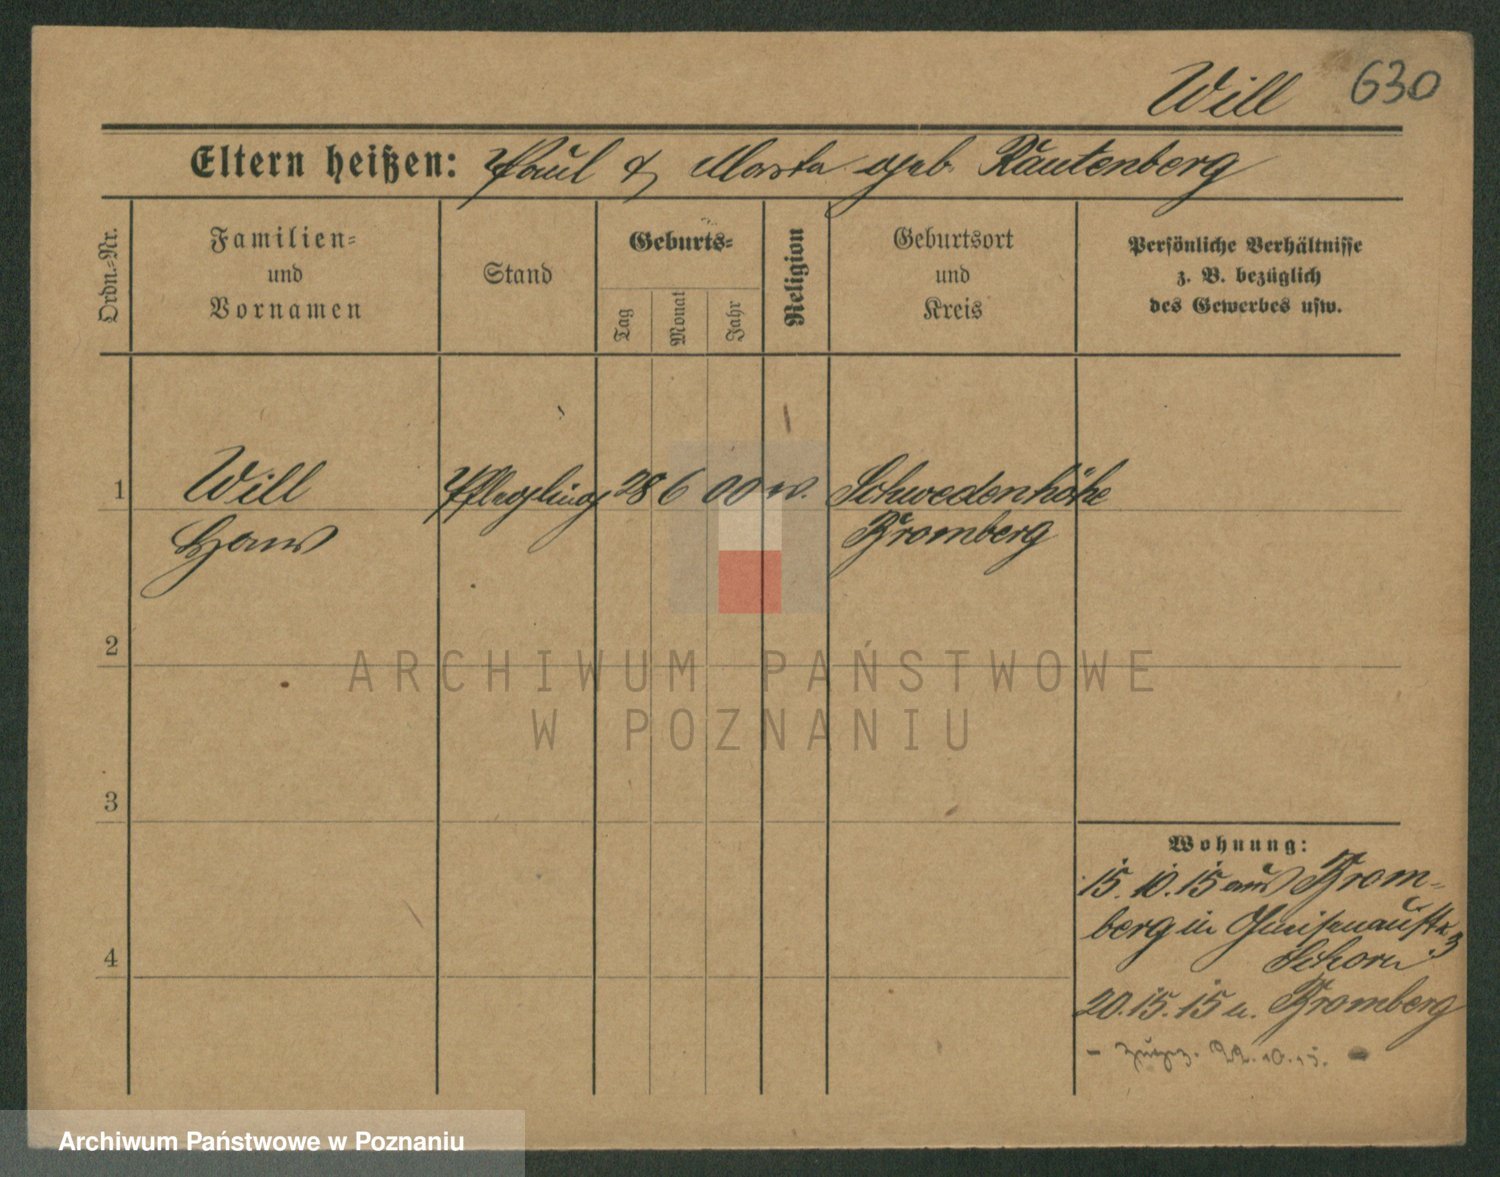 Will 630
Eltern heißen: Paul & Marta geb. Rautenberg
Ordn.-Nr.
Familien-
und
Vornamen
Stand
Geburts-
Tag
Monat
Jahr
Religion
Geburtsort
und
Kreis
Persönliche Verhältnisse
z. B. bezüglich
des Gewerbes usw.
1 Will Pflegling 28 6 00 Schwedenhöhe
Hans Bromberg
2
3
4
Wohnung:
15. 10. 15 aus Brom-
berg in Gneisenaustr. 3
Schorn
20.15.15 n. Bromberg
22.10.15.
ARCHIWUM PAŃSTWOWE
W POZNANIU
Archiwum Państwowe w Poznaniu